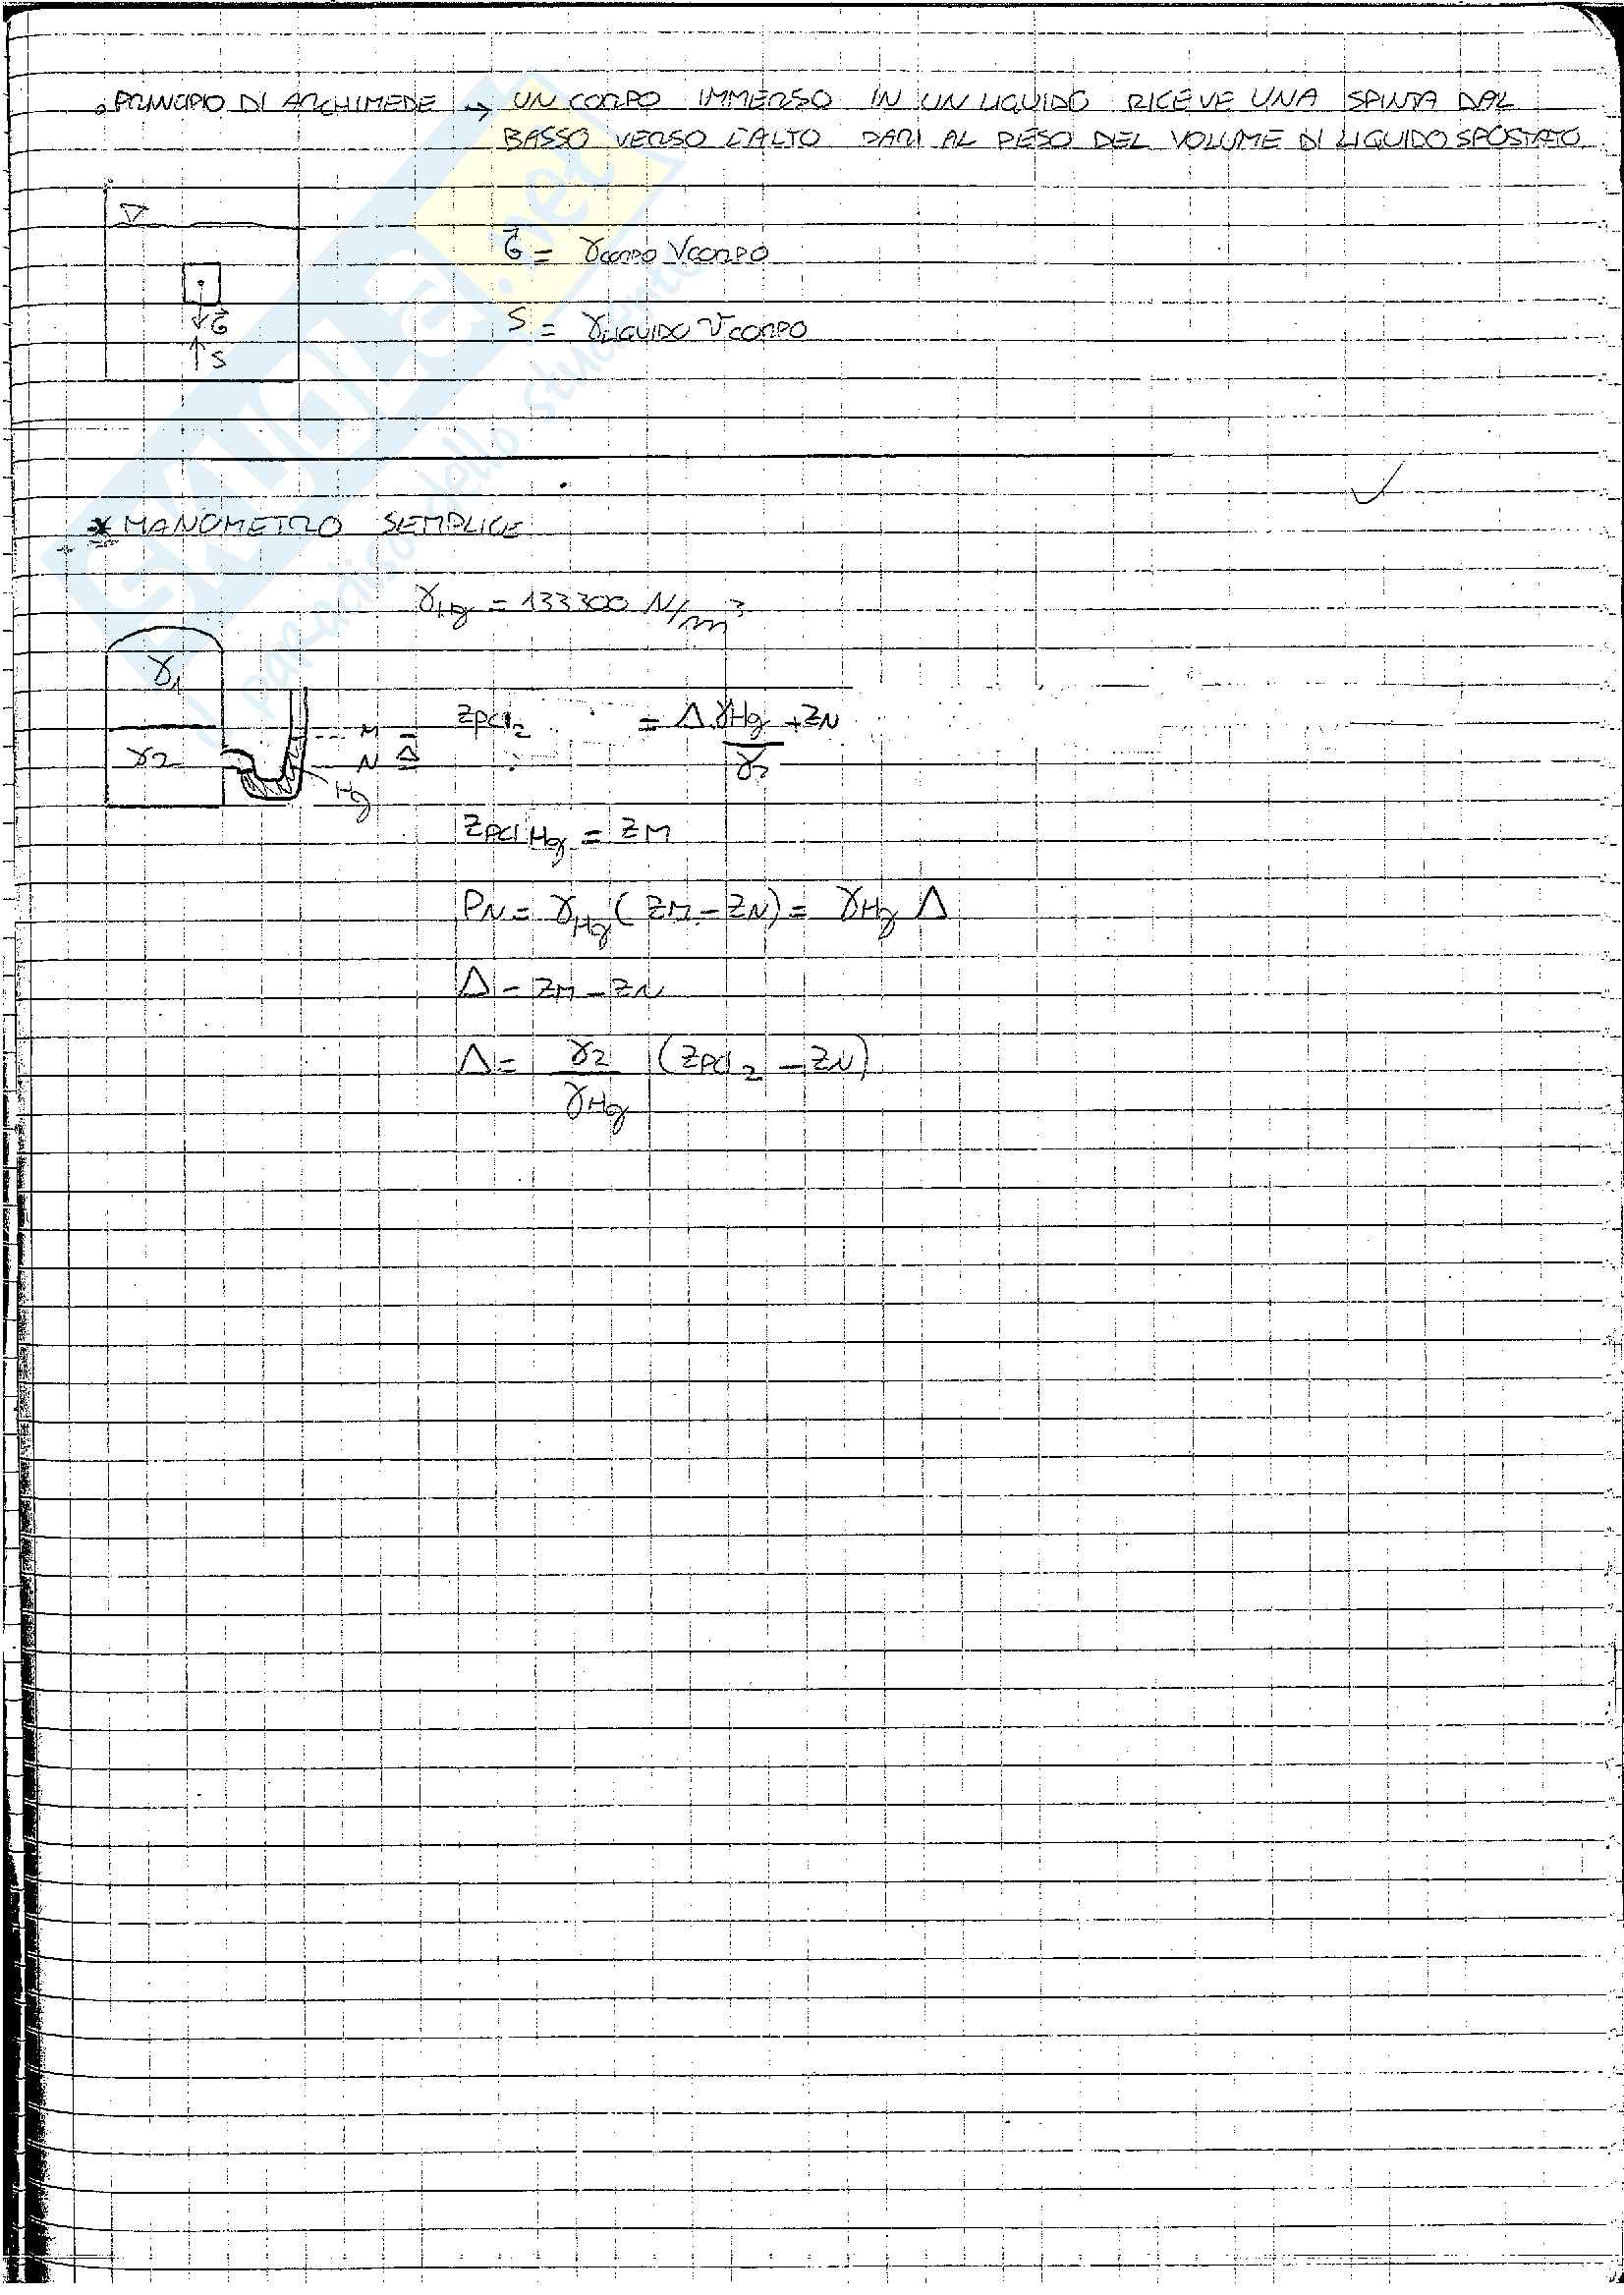 . PRINCIPIO DI ARCHIMEDE → UN CORPO IMMERSO IN UN LIQUIDO RICEVE UNA SPINTA DAL
BASSO VERSO L'ALTO PARI AL PESO DEL VOLUME DI LIQUIDO SPOSTATO
G⃗ = γcorpo Vcorpo
S = γLIQUIDO Vcorpo
G⃗
S
* MANOMETRO SEMPLICE
γHg = 133300 N/m³
γ1
γ2
M
N Δ
Hg
ZPCI2 = Δ γHg/γ2 + ZN
ZPCIHg = ZM
PN = γHg (ZM - ZN) = γHg Δ
Δ = ZM - ZN
Δ = γ2/γHg (ZPCI2 - ZN)
SKUOLA.net
paradiso dello studente